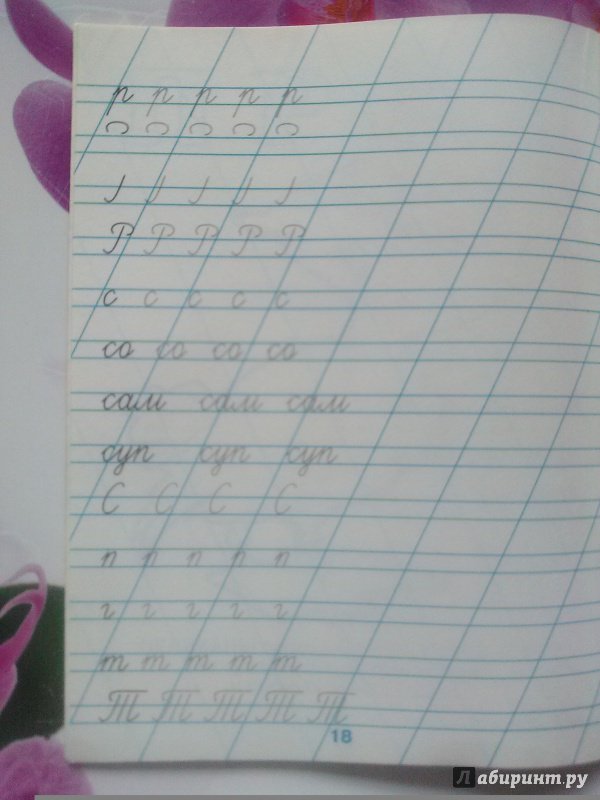 р р р р р
Р Р Р Р Р
с с с с с
со со со со
сам сам сам
суп суп суп
С С С С
п п п п п
г г г г г
т т т т т
Т Т Т Т Т
18
Лабиринт.ру